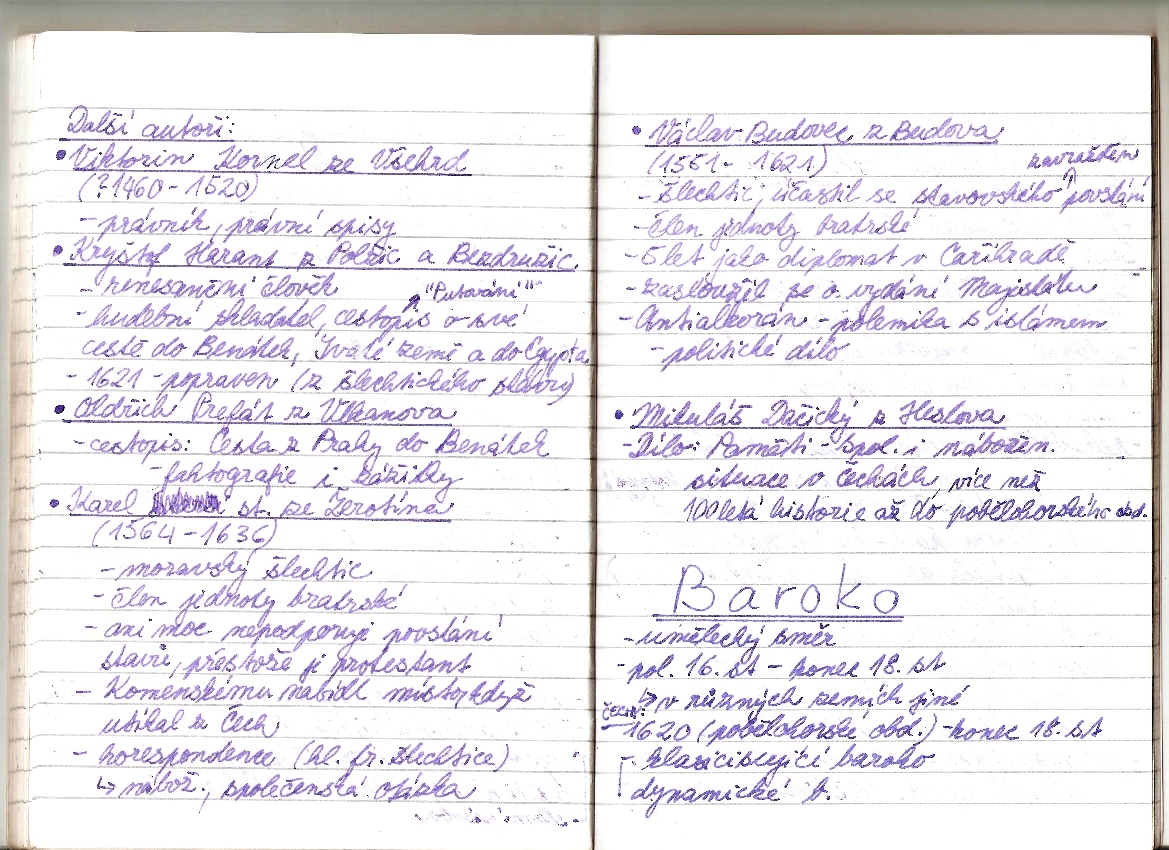 Další autoři:
• Viktorin Kornel ze Všehrd
(?1460 - 1520)
- právník, právní spisy
• Kryštof Harant z Polžic a Bezdružic
- renesanční člověk
"Putování"
- hudební skladatel, cestopis o své
cestě do Benátek, Svaté země a do Egypta
- 1621 - popraven (z šlechtického stavu)
• Oldřich Prefát z Vlkanova
- cestopis: Cesta z Prahy do Benátek
- faktografie i zážitky
• Karel st. ze Žerotína
(1564 - 1636)
- moravský šlechtic
- člen jednoty bratrské
- ani moc nepodporuje povstání
stavů, přestože je protestant
- Komenskému nabídl místo, když
utíkal z Čech
- korespondence (hl. fr. šlechtice)
↳ nábož., společenská otázka
• Václav Budovec z Budova
(1551 - 1621)
- šlechtic, účastil se stavovského povstání
- člen jednoty bratrské
- 5 let jako diplomat v Cařihradě
- zasloužil se o vydání Majestátu
- Antialkorán - polemika s islámem
- politické dílo
• Mikuláš Dačický z Heslova
- Dílo: Paměti - spol. i nábožen.
situace v Čechách, více než
100letá historie až do pobělohorského obd.
Baroko
- umělecký směr
- pol. 16. st - konec 18. st
↳ v různých zemích jiné
ČECHY:
1620 (pobělohorské obd.) - konec 18. st
- klasicisující baroko
dynamické b.